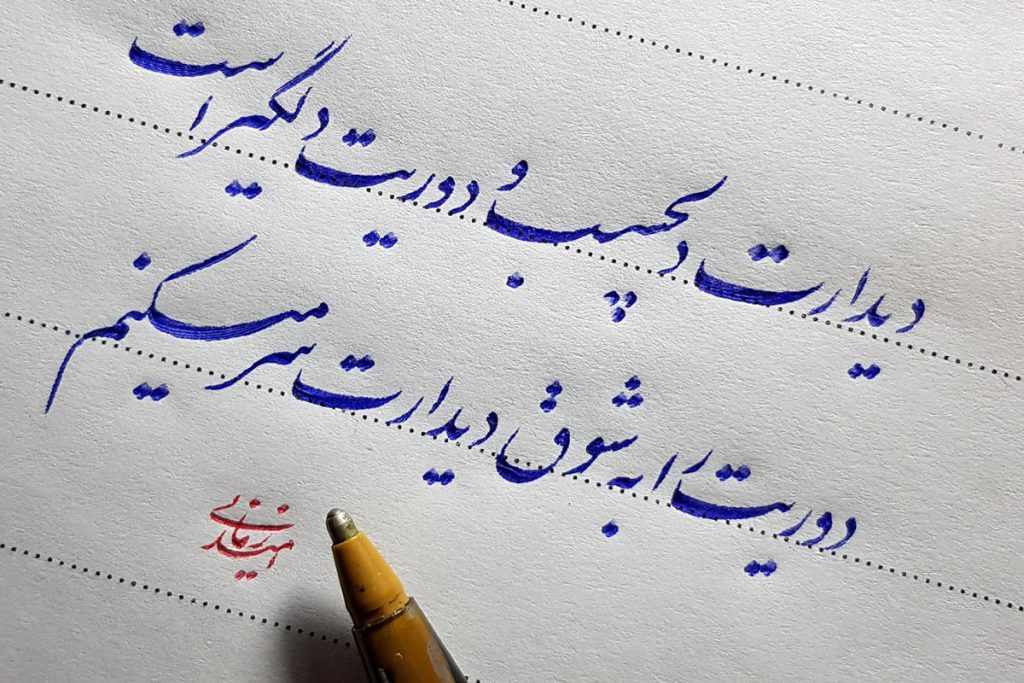 دیدارت دلچسب و دوریت دلگیر است
دوریت را به شوق دیدارت سر میکنیم
امید زمانی